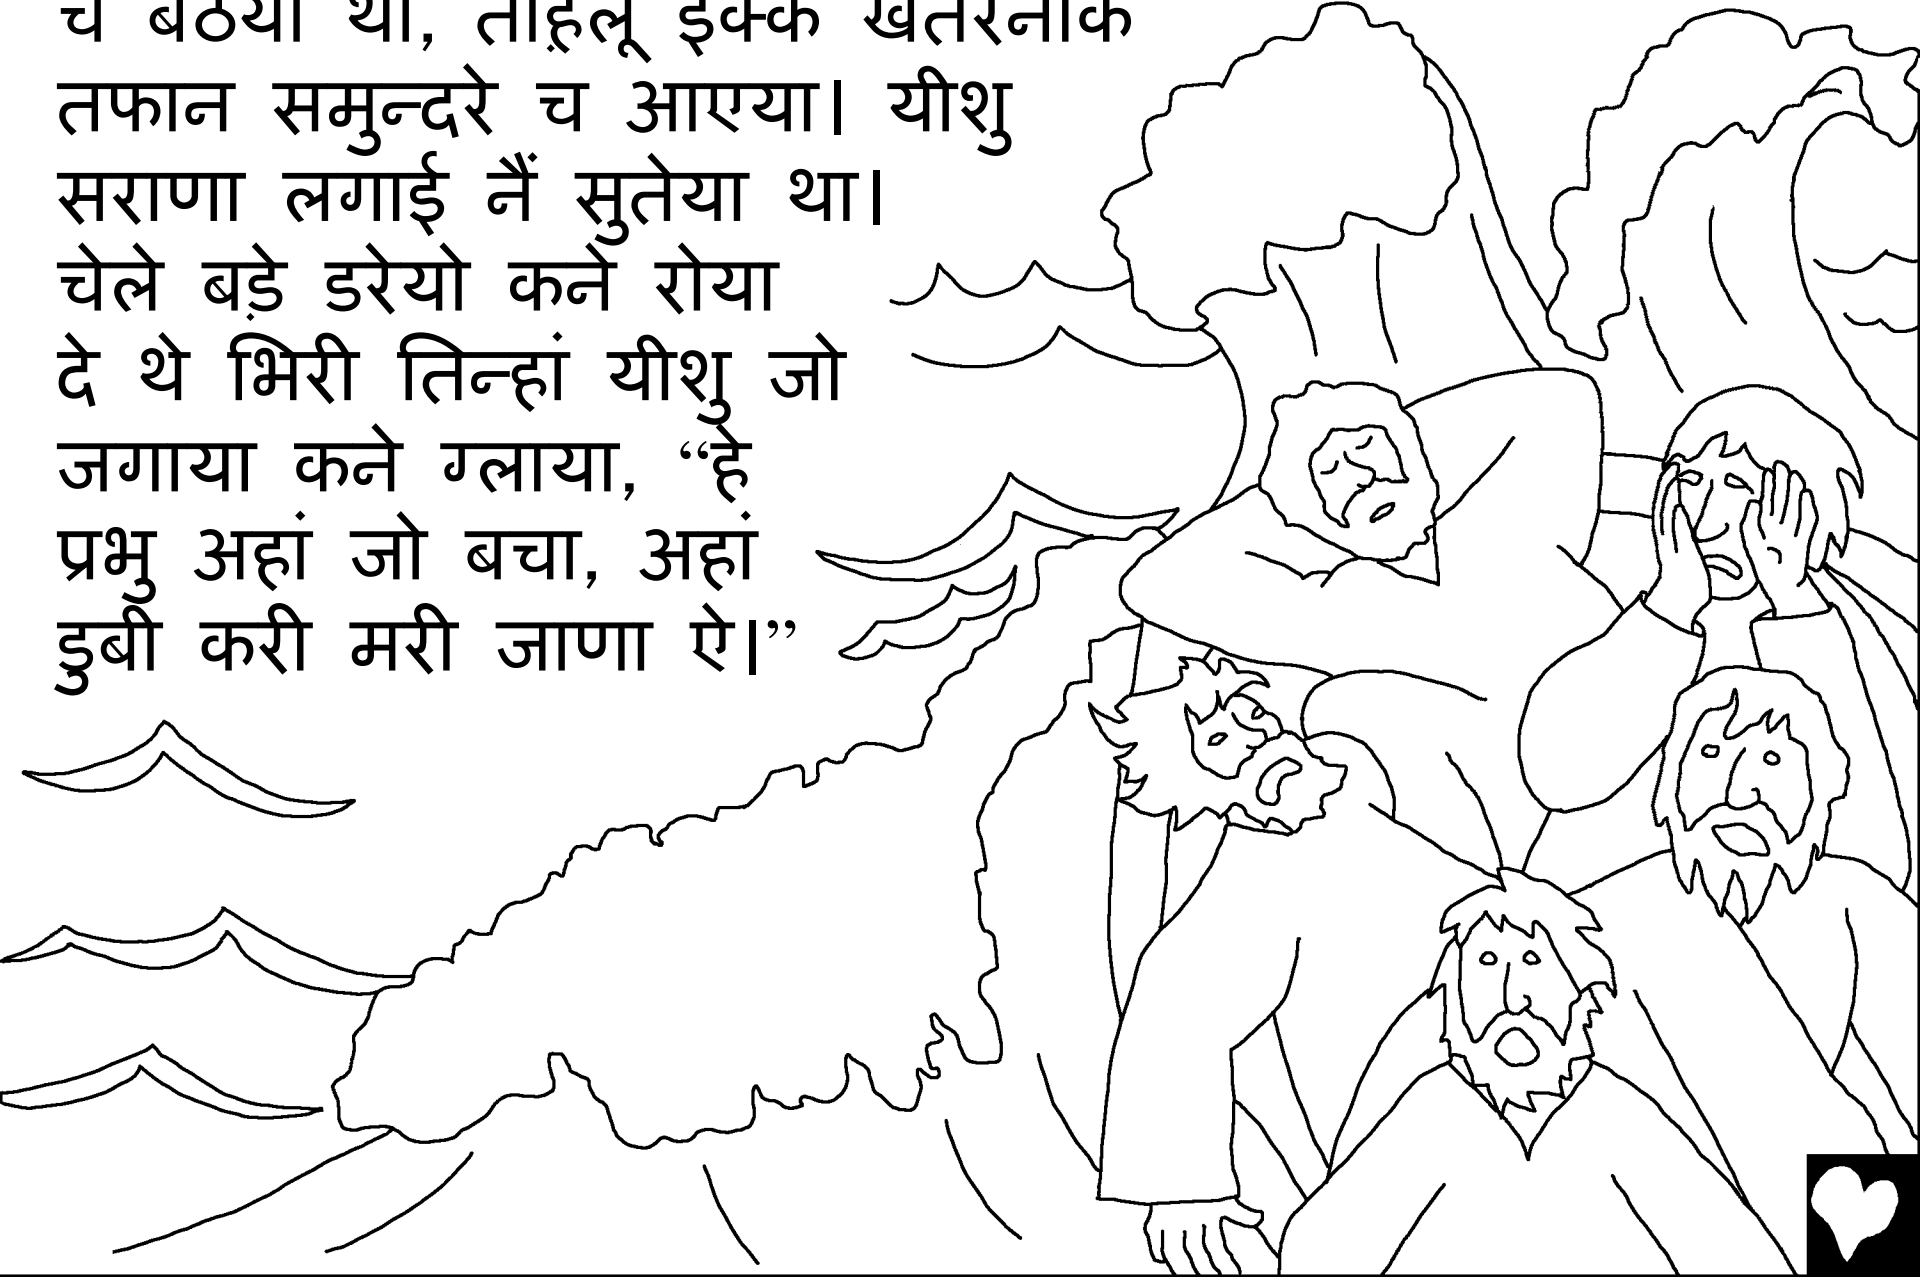 च बैठेया था, ताह़लू इक्क खतरनाक
तफान समुन्दरे च आएया। यीशु
सराणा लगाई नैं सुतेया था।
चेले बड़े डरेयो कने रोया
दे थे भिरी तिन्हां यीशु जो
जगाया कने ग्लाया, “हे
प्रभु अहां जो बचा, अहां
डुबी करी मरी जाणा ऐ।”